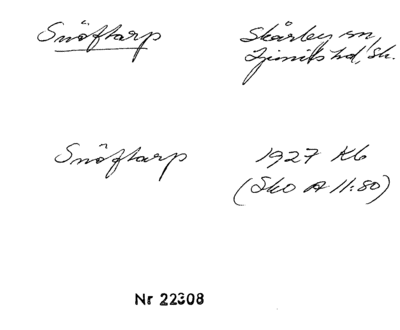 Snöftarp Skårby sn,
Ljunits hd, Sk.
Snöftarp 1927 Kb
(Sko A 11:80)
Nr 22308